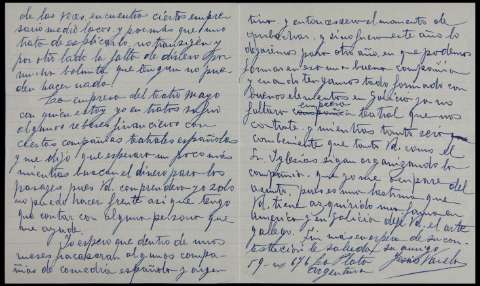 de las veces encuentro ciertos empre-
sarios medio locos, y por más que uno
trata de explicarlo, no transigen y
por otro lado la falta de dinero por
mucha voluntad que tengan no pue-
den hacer nada.
La empresa del teatro mayo
con quien estoy yo en tratos sufrió
algunos reveses financieros con
ciertas compañías teatrales españolas
y me dijo que esperara un poco más
mientras buscan el dinero para los
pasages, pues Vd. comprenderá yo solo
no puedo hacer frente así que tengo
que contar con alguna persona que
me ayude.
Yo espero que dentro de unos
meses fracasarán algunas compa-
ñías de comedia española y argen-
tina y entonces será el momento de
aprobechar, y si no fuere este año lo
dejaremos para otro año, en que podemos
formar en esa una buena compañía
y cuando tengamos todo formado con
buenos elementos en galicia ya no
faltará empresa teatral que nos
contrate, y mientras tanto será
combeniente que tanto Vd. como el
Sr. Iglesias sigan organizando la
compañía, que yo me ocuparé del
asunto, pues es una lástima que
Vd. tiene adquirido una fama en
América y en galicia deje Vd. el arte
gallego. Sin más en espera de su con-
testación le saluda su amigo
59 - nº 676 La Plata Jesús Varela
Argentina